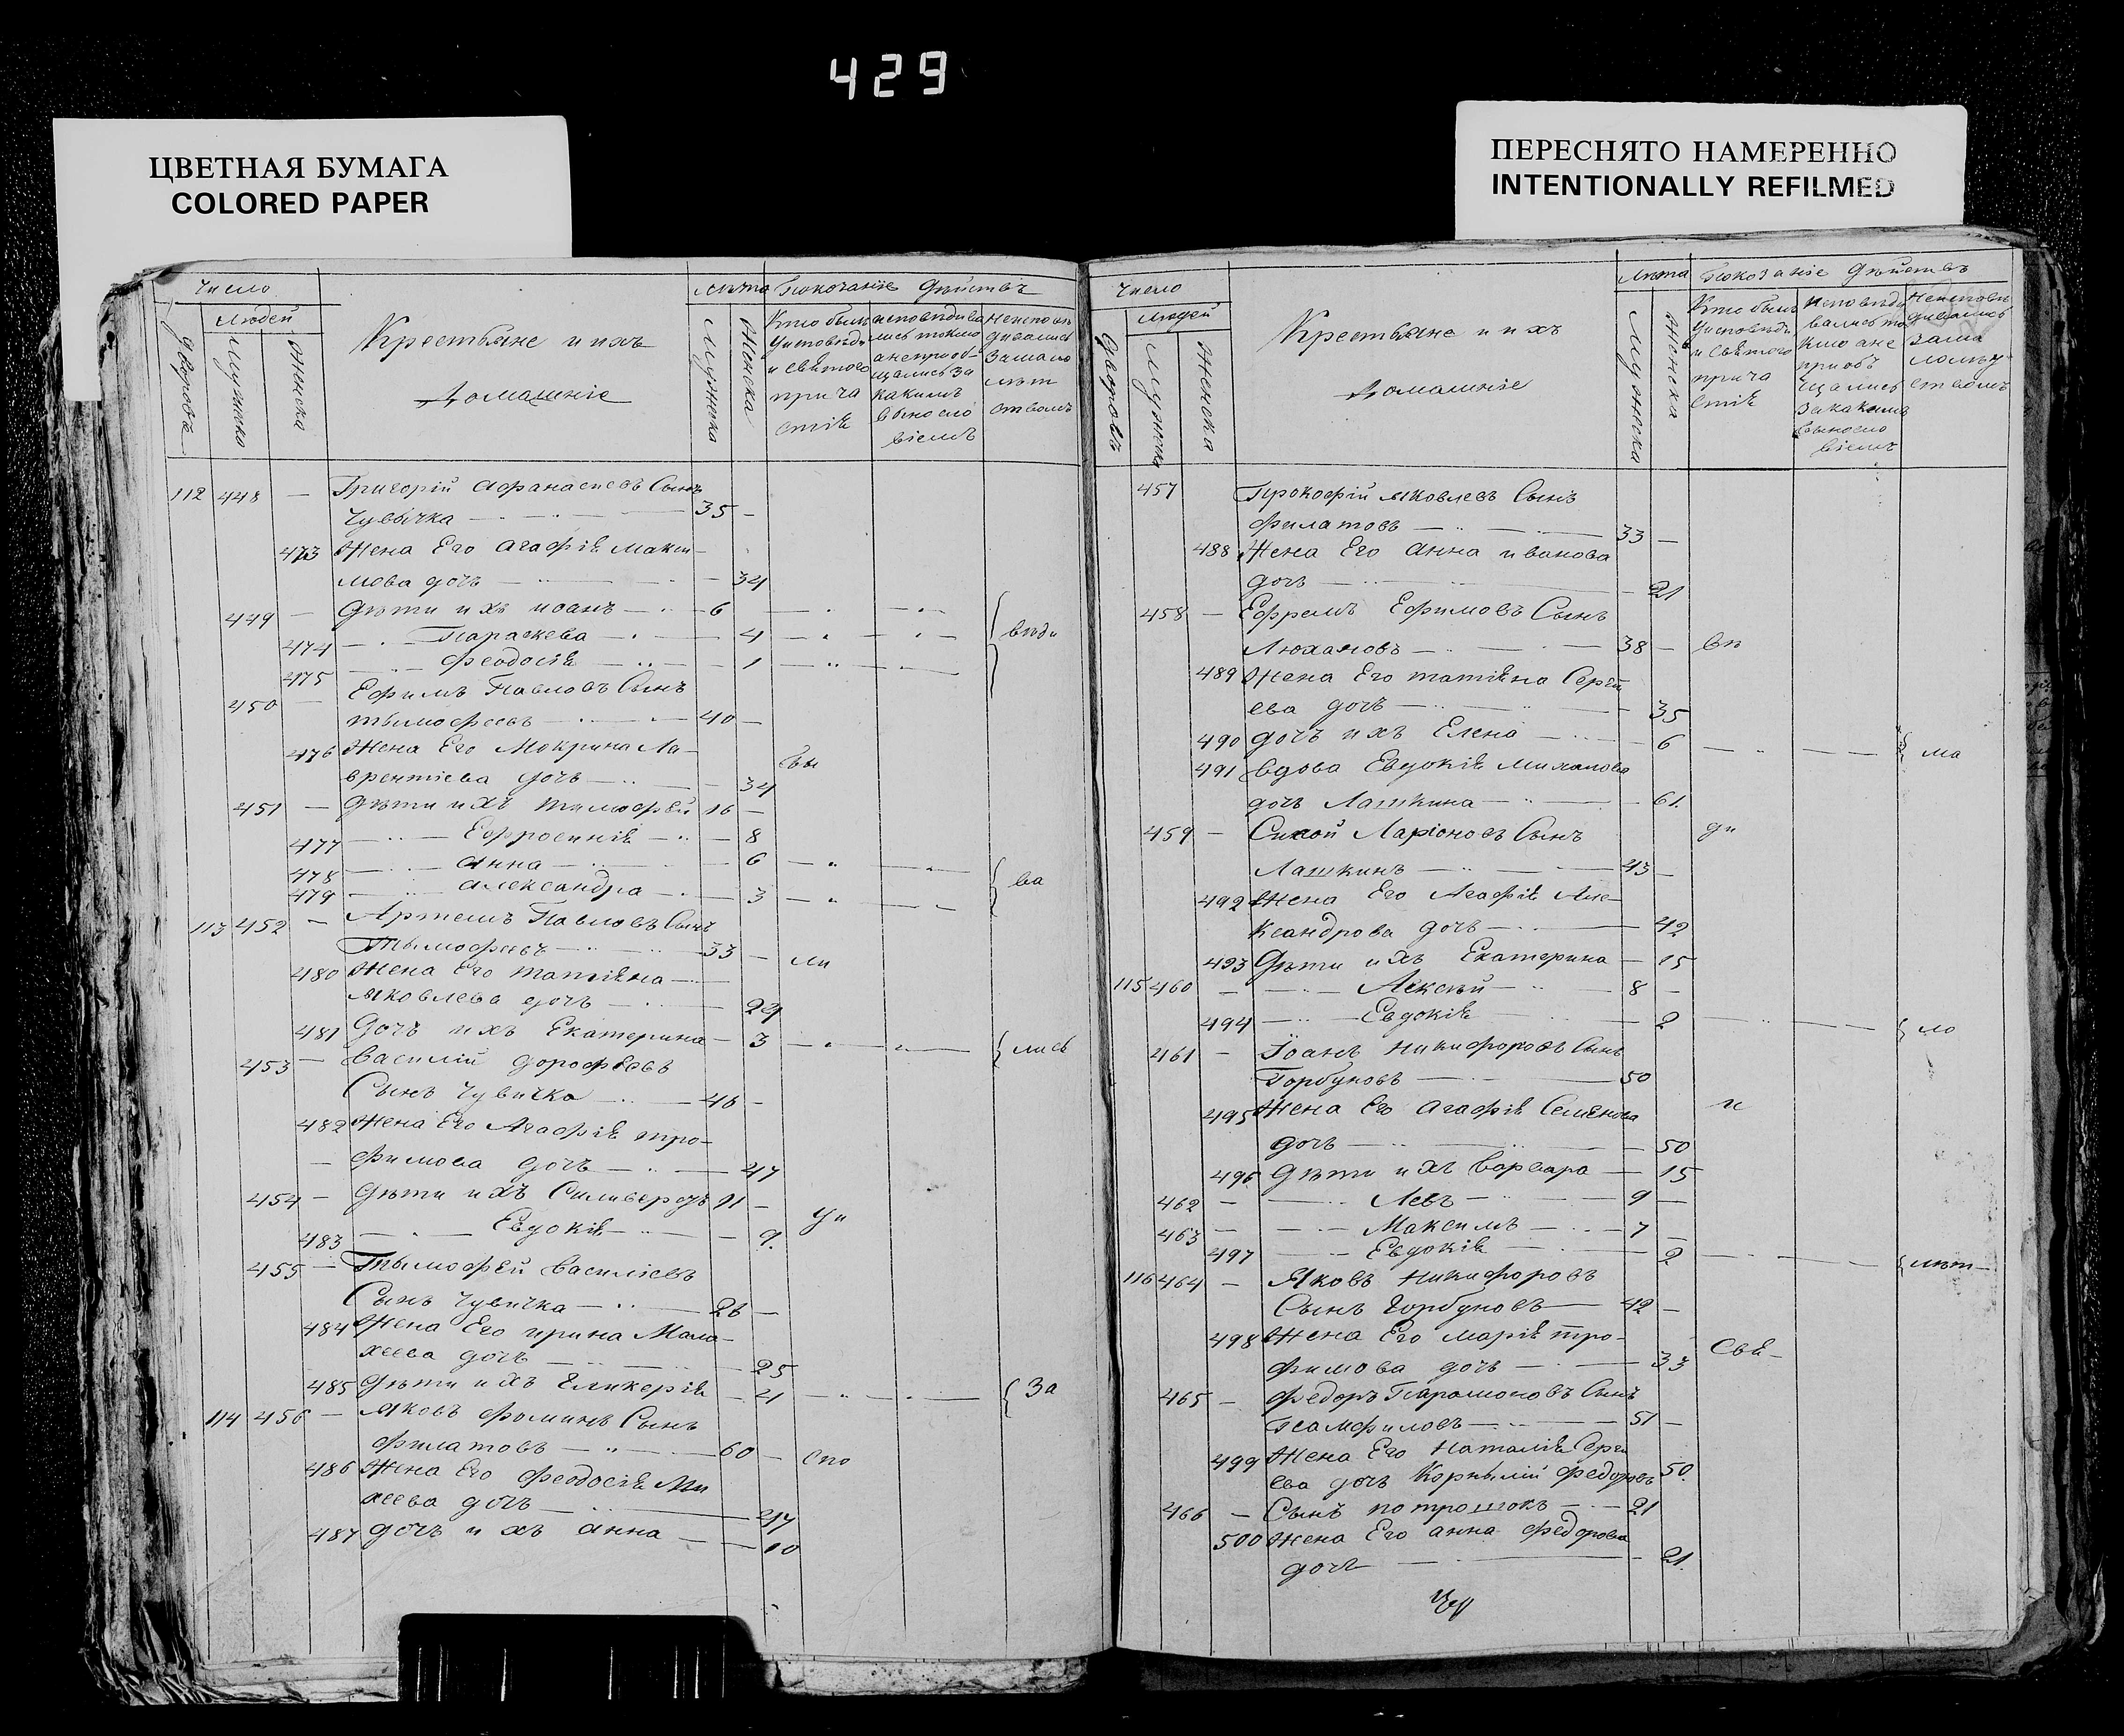 429
ЦВЕТНАЯ БУМАГА
COLORED PAPER
ПЕРЕСНЯТО НАМЕРЕННО
INTENTIONALLY REFILMED
Число
Людей
Дворовъ
Мужска
Женска
Крестьяне и ихъ
Домашніе
Лѣта
Мужска
Женска
Показаніе Дѣйствъ
Кто былъ
Уисповѣди
и свѣтого
прича
стіѣ
исповѣдива
лись токмо
анеприоб-
щались за
какимъ
выносло
віемъ
Неисповѣ
дивались
Замало
лѣт
ствомъ
112 448 — Григорій Афанасиевъ Сынъ
Чувычка 35 —
473 Жена Его Агафіѣ Макси-
мова дочъ — 34
449 — Дѣти ихъ иоанъ 6
474 Параскева 4 вѣди
475 Феодосіѣ 1
450 — Ефимъ Павловъ Сынъ
тымофеевъ 40 —
476 Жена Его Мокрина Ла-
врентіева дочъ 34 вы
451 — Дѣти ихъ тимофей 16 —
477 Ефросиніѣ 8
478 Анна 6
479 Александра 3 ва
113 452 — Артемъ Павловъ Сынъ
Тымофеевъ 33 — ли
480 Жена Его татіѣна
Яковлева дочъ 29
481 Дочъ ихъ Екатерина 3 лись
453 — Василій дорофѣевъ
Сынъ Чувичка 48 —
482 Жена Его Агафіѣ тро-
— фимова дочъ 47
454 — Дѣти ихъ Силиверстъ 11 —
483 Евдокіѣ 9 Уи
455 — Тымофей Василіевъ
Сынъ Чувичка 26 —
484 Жена Его ирина Мала-
хеева дочъ 25
485 Дѣти ихъ Гликеріѣ 21 За
114 456 — Яковъ фоминъ Сынъ
филатовъ 60 — спо
486 Жена Его Феодосіѣ Ми
хеева дочъ 47
487 дочъ ихъ анна 10
Число
Людей
Дворовъ
Мужска
Женска
Крестьяне и ихъ
Домашніе
Лѣта
Мужска
Женска
Показаніе Дѣйствъ
Кто былъ
Уисповѣди
и Свѣтого
прича
стіѣ
Исповѣди
вались то
кмо ане
приобъ
щались
закакимъ
выносло
віемъ
Неисповѣ
дивались
зама
ломъу
ствомъ
457 Прокофій Яковлевъ Сынъ
филатовъ 33 —
488 Жена Его анна иванова
дочъ 21
458 — Ефремъ Ефимовъ Сынъ
Люхановъ 38 —
489 Жена Его татіѣна Сергѣ
ева дочъ 35
490 дочъ ихъ Елена 6 ма
491 вдова Евдокіѣ Михаилова
дочъ Лашкина 61
459 — Ларіоновъ Сынъ ди
Лашкинъ 43 —
492 Жена Его Агафіѣ Але-
ксандрова дочъ 42
493 Дѣти ихъ Екатерина 15
115 460 — Алексѣй 8 —
494 Евдокіѣ 2 ло
461 — Іоанъ Никифоровъ Сынъ
Горбуновъ 50
495 Жена Его агафіѣ Семѣнова
дочъ 50
496 Дѣти ихъ варвара 15
462 — Левъ 9 —
463 — Максимъ 7 —
497 Евдокіѣ 2 лѣт—
116 464 — Яковъ Никифоровъ
Сынъ Горбуновъ 42 —
498 Жена Его маріѣ тро-
фимова дочъ 33 Свѣ-
465 — Федоръ Парамоновъ Сынъ
Памфиловъ 51 —
499 Жена Его Наталіѣ Серги
ева дочъ Корнылій федоровъ 50
466 — Сынъ потрошокъ 21
500 Жена Его анна федорова
дочъ 21